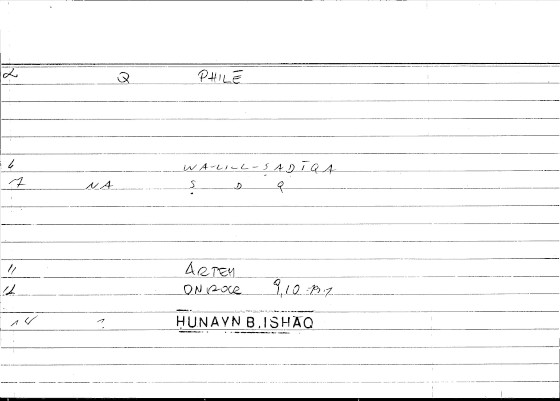 2 Q PHILĒ
6 WA-LI-L-ṢADĪQA
7 NA Ṣ D Q
11 ARTEM
12 9,10
14 ? HUNAYN B. ISHAQ